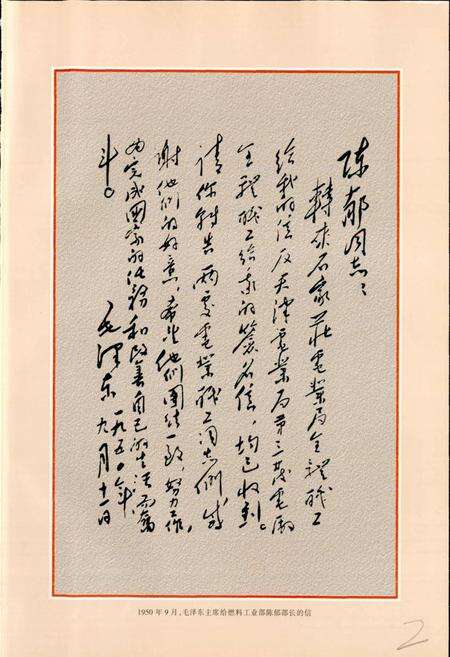 陈郁同志：
轉来石家莊电業局全體職工
给我的信及天津电業局第三發电廠
全體職工给我的簽名信，均已收到。
请你轉告两處电業職工同志們，感
谢他们的好意，希望他们團结一致，努力工作，
为完成國家的任務和改善自己的生活而奮
斗。
毛澤东
一九五〇年
九月十一日
1950年9月，毛泽东主席给燃料工业部陈郁部长的信
2